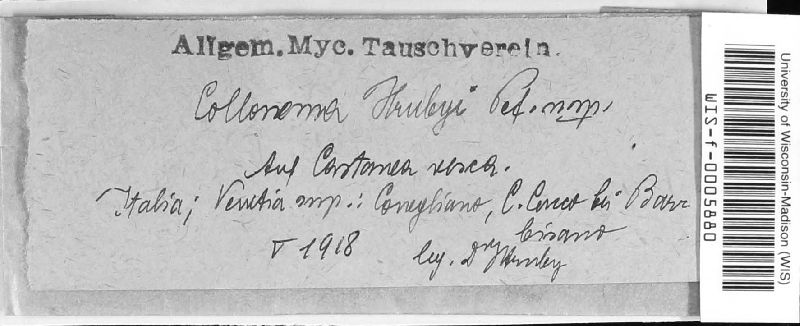 Allgem. Myc. Tauschverein.
Collonema Hrubyi Pet. n. sp.
Auf Castanea vesca.
Italia; Venetia sup.: Conegliano, C. Cucco bei
V 1918
leg. Dr Hruby
University of Wisconsin-Madison (WIS)
WIS-f-0005880